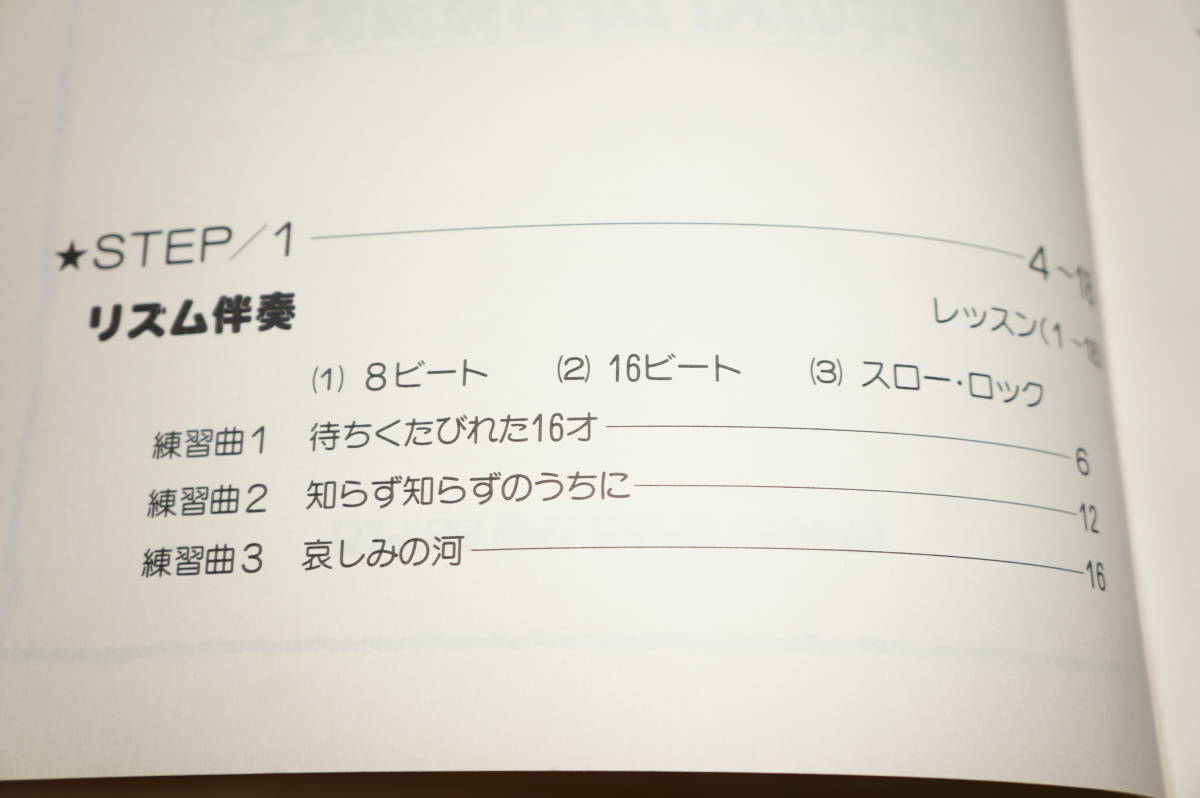 ★STEP/1 4~18
リズム伴奏
レッスン(1~18)
(1) 8ビート (2) 16ビート (3) スロー・ロック
練習曲1 待ちくたびれた16才 6
練習曲2 知らず知らずのうちに 12
練習曲3 哀しみの河 16